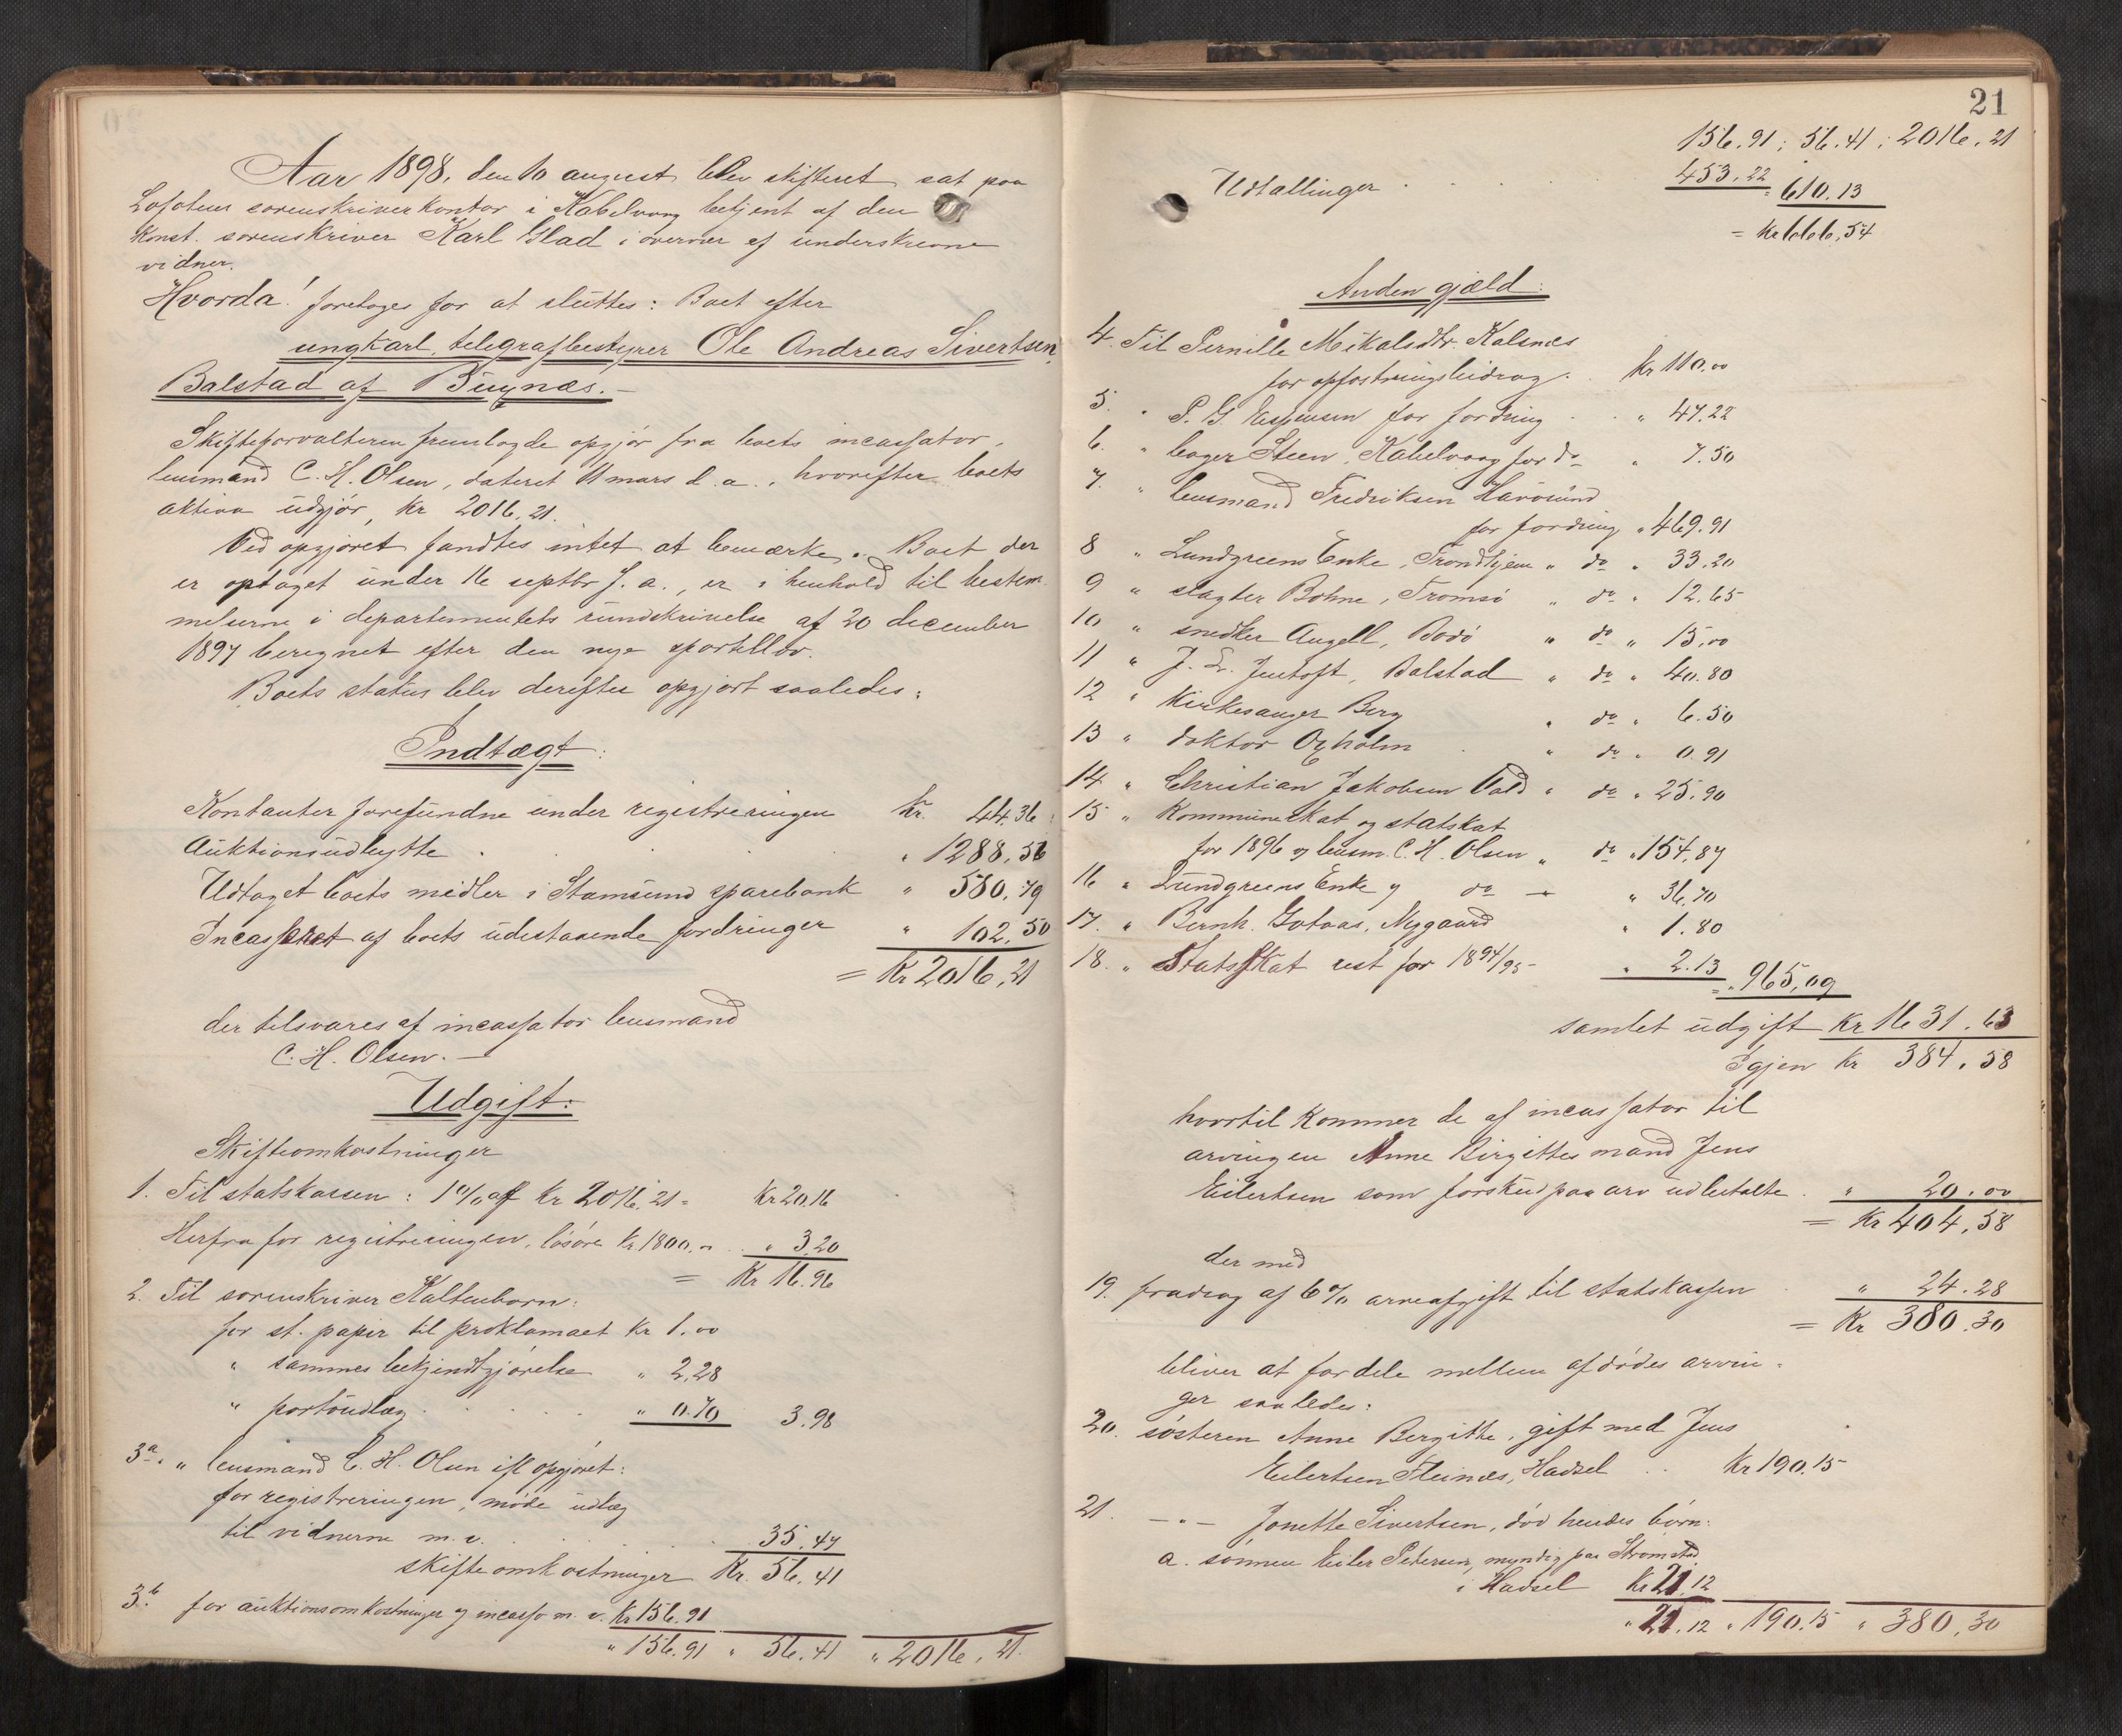 Aar 1898, den 10 august blev skifteret sat paa
Lofotens sorenskriverkontor i Kabelvaag betjent af den
Konst. sorenskriver Karl Glad i overvær af underskrevne
vidner.
Hvorda! foretoges for at sluttes: Boet efter
ungkarl, telegrafbestyrer Ole Andreas Sivertsen,
Balstad af Buxnæs. –
Skifteforvalteren fremlagde opgjør fra boets incassator,
lensmand C. H. Olsen, dateret 11 mars d. a., hvorefter boets
aktiva udgjør, Kr 2016,21.
Ved opgjøret fandtes intet at bemærke. Boet der
er optaget under 16 septbr f. a., er i henhold til bestem-
melserne i departementets rundskrivelse af 20 december
1897 beregnet efter den nye sportellov.
Boets status blev derefter opgjort saaledes:
Indtægt:
Kontanter forefundne under registreringen Kr. 44,36
Auktionsudbytte . . . " 1288,56
Udtaget boets midler i Stamsund sparebank " 580,79
Incasseret af boets udestaaende fordringer " 102,50
= Kr 2016,21
der tilsvares af incassator lensmand
C. H. Olsen. –
Udgift:
Skifteomkostninger
1. Til statskassen: 1% af Kr 2016,21 = Kr 20,16
Herfra for registreringen, løsøre Kr. 1800,00 . . " 3,20
= Kr 16.96
2. Til sorenskriver Kaltenborn:
for st. papir til proklamaet Kr 1.00
" sammes bekjendtgjørelse " 2,28
" portoudlæg . . . . " 0.70 3.98
3a. " lensmand C. H. Olsen ifl opgjøret:
for registreringen, møde udlæg
til vidnerne m. v. . . . . 35,47
skifteomkostninger Kr. 56,41
3b. for auktionsomkostninger og incasso m. v. Kr 156.91
" 156.91 " 56.41 " 2016,21.
21
156.91; 56.41; 2016,21
Udtallinger . . . . 453.22 = 610.13
= Kr 666,54
Anden gjæld:
4. Til Pernille Mikalsdtr. Kalsnes
for opfostringsbidrag. Kr 110.00
5. " P. G. Espensen for fordring . . " 47.22
6. " bager Steen, Kabelvaag for do " 7.50
7. " lensmand Fredriksen Havøsund
for fordring " 469.91
8 " Lundgreens Enke, Trondhjem " do " 33.20
9 " slagter Bohne, Tromsø " do " 12.65
10 " snedker Angell, Bodø " do " 15,00
11 " J. L. Jentoft, Balstad " do " 40.80
12 " Kirkesanger Berg " do " 6.50
13 " doktor Oxholm . " do " 0.91
14 " Christian Jakobsen Vold " do " 25.90
15 " Kommuneskat og statskat
for 1896 og lensm. C. H. Olsen " do " 154,87
16 " Lundgreens Enke " do – " 36,70
17. " Bernh. Gotaas, Nygaard " 1.80
18. " Statsskat rest for 1894/95 – " 2.13 = " 965,09
samlet udgift Kr 1631.63
Igjen Kr 384.58
hvortil kommer de af incassator til
arvingen Anne Birgittes mand Jens
Eilertsen som forskud paa arv udbetalte . " 20.00
= Kr 404,58
der med
19. fradrag af 6% arveafgift til statskassen . " 24.28
= Kr 380.30
bliver at fordele mellem afdødes arvin-
ger saaledes:
20. søsteren Anne Bergitte, gift med Jens
Eilertsen Fleines, Hadsel . . Kr 190.15
21. – " – Jonette Sivertsen, død hendes børn:
a. sønnen Eiler Petersen, myndig paa Strømstad
i Hadsel Kr 21,12
" 21.12 " 190.15 " 380,30